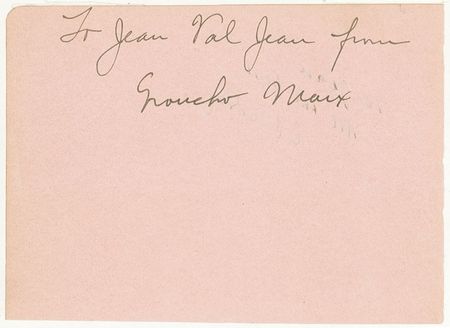 To Jean Val Jean from
Groucho Marx